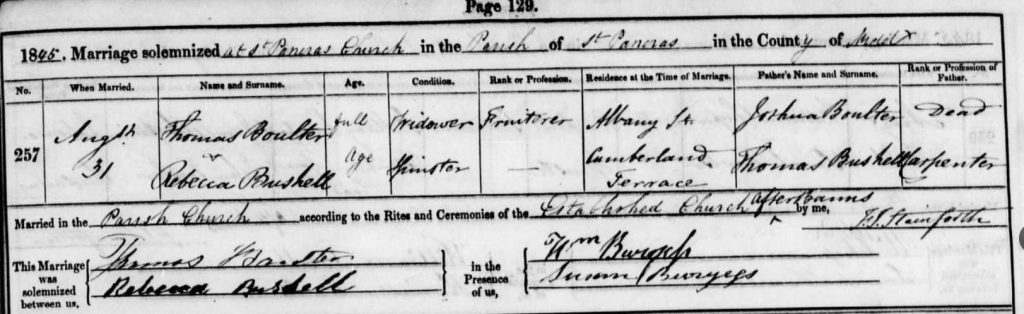 Page 129.
1845. Marriage solemnized at St Pancras Church in the Parish of St Pancras in the County of Middx
No. When Married. Name and Surname. Age. Condition. Rank or Profession. Residence at the Time of Marriage. Father's Name and Surname. Rank or Profession of Father.
257 Augst 31 Thomas Boulter full Widower Fruiterer Albany St. Joshua Boulter Dead
& Rebecca Bushell Age Spinster — Cumberland Terrace Thomas Bushell Carpenter
Married in the Parish Church according to the Rites and Ceremonies of the Established Church after Banns by me, Stainforth
This Marriage was solemnized between us, Thomas Boulter Rebecca Bushell in the Presence of us, Wm Burgess Susan Burgess